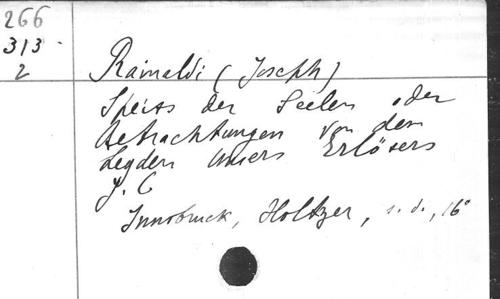 266
313
2
Rainaldi (Joseph)
Speiss der Seelen oder
Betrachtungen von dem
Leyden unsers Erlösers
J. C
Innsbruck, Holtzer, s.d., 16°